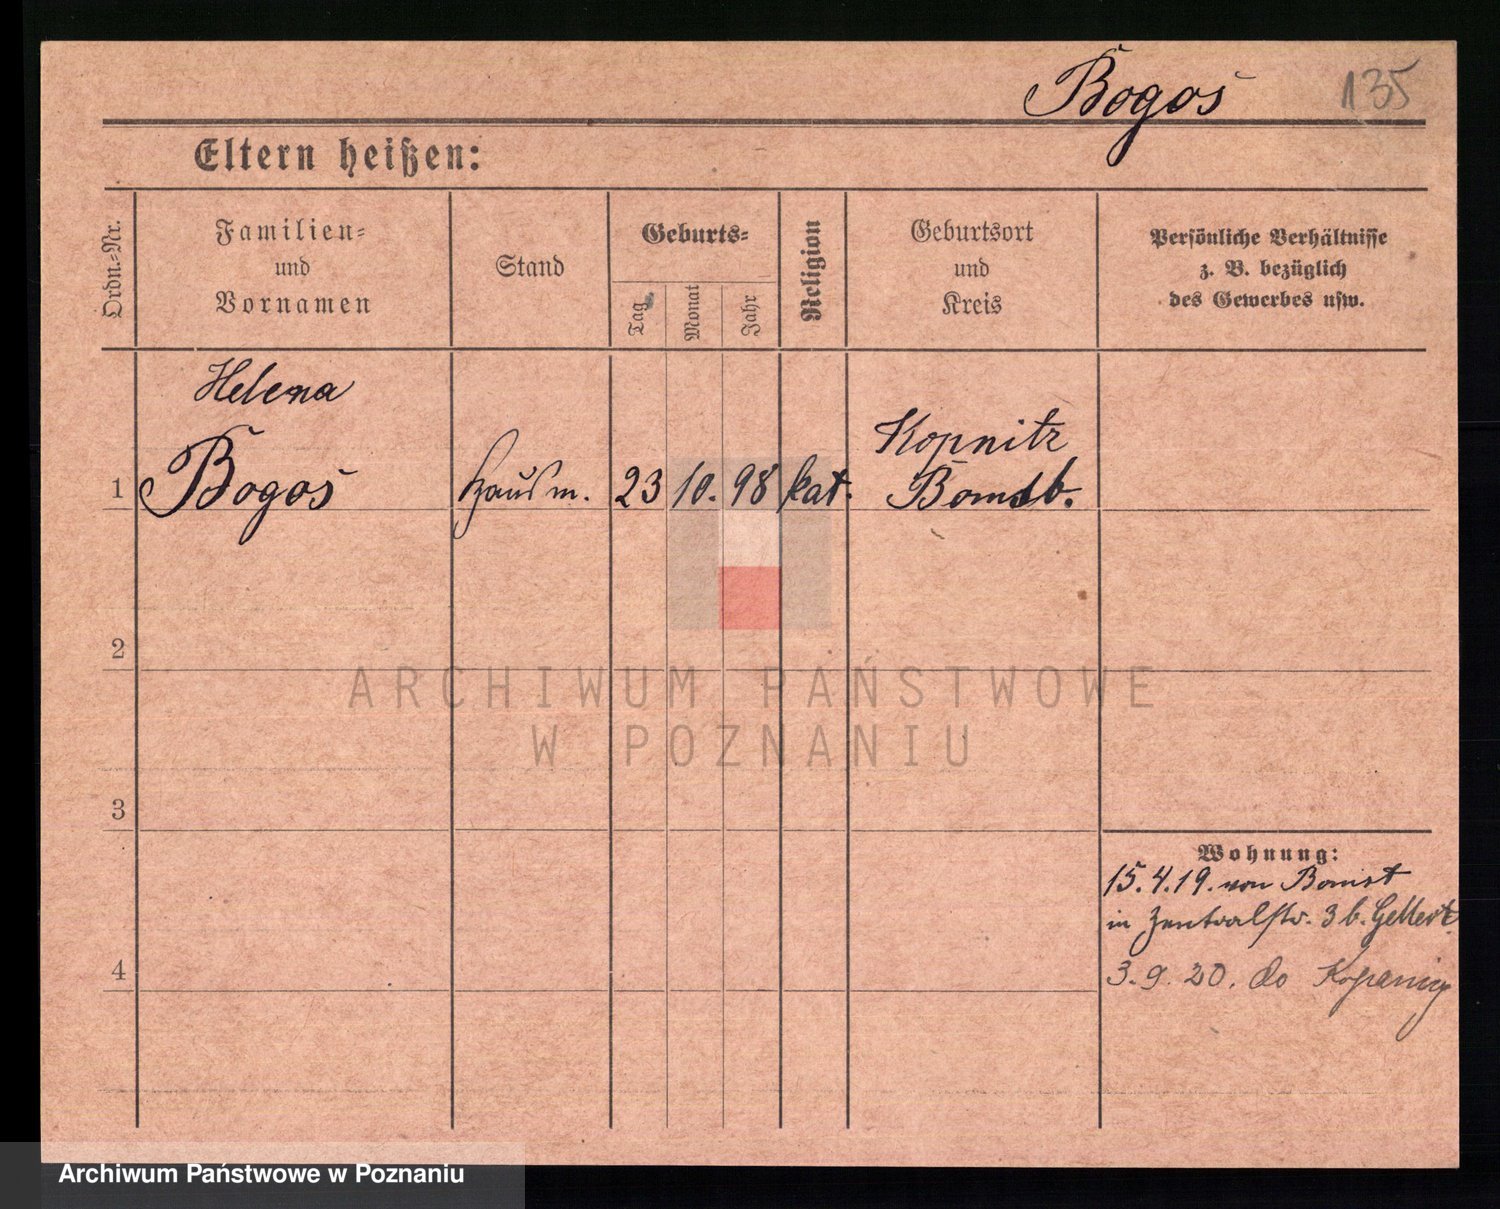 Bogoś 135
Eltern heißen:
Ordn.-Nr.
Familien-
und
Vornamen
Stand
Geburts-
Tag
Monat
Jahr
Religion
Geburtsort
und
Kreis
Persönliche Verhältnisse
z. B. bezüglich
des Gewerbes usw.
Helena
1 Bogoś Hausm. 23 10. 98 kat.
Kopnitz
Bomst b.
2
3
4
Wohnung:
15.4.19. von Bomst
in Zentralstr. 3 b. Gellert
3.9.20. do
ARCHIWUM PAŃSTWOWE
W POZNANIU
Archiwum Państwowe w Poznaniu